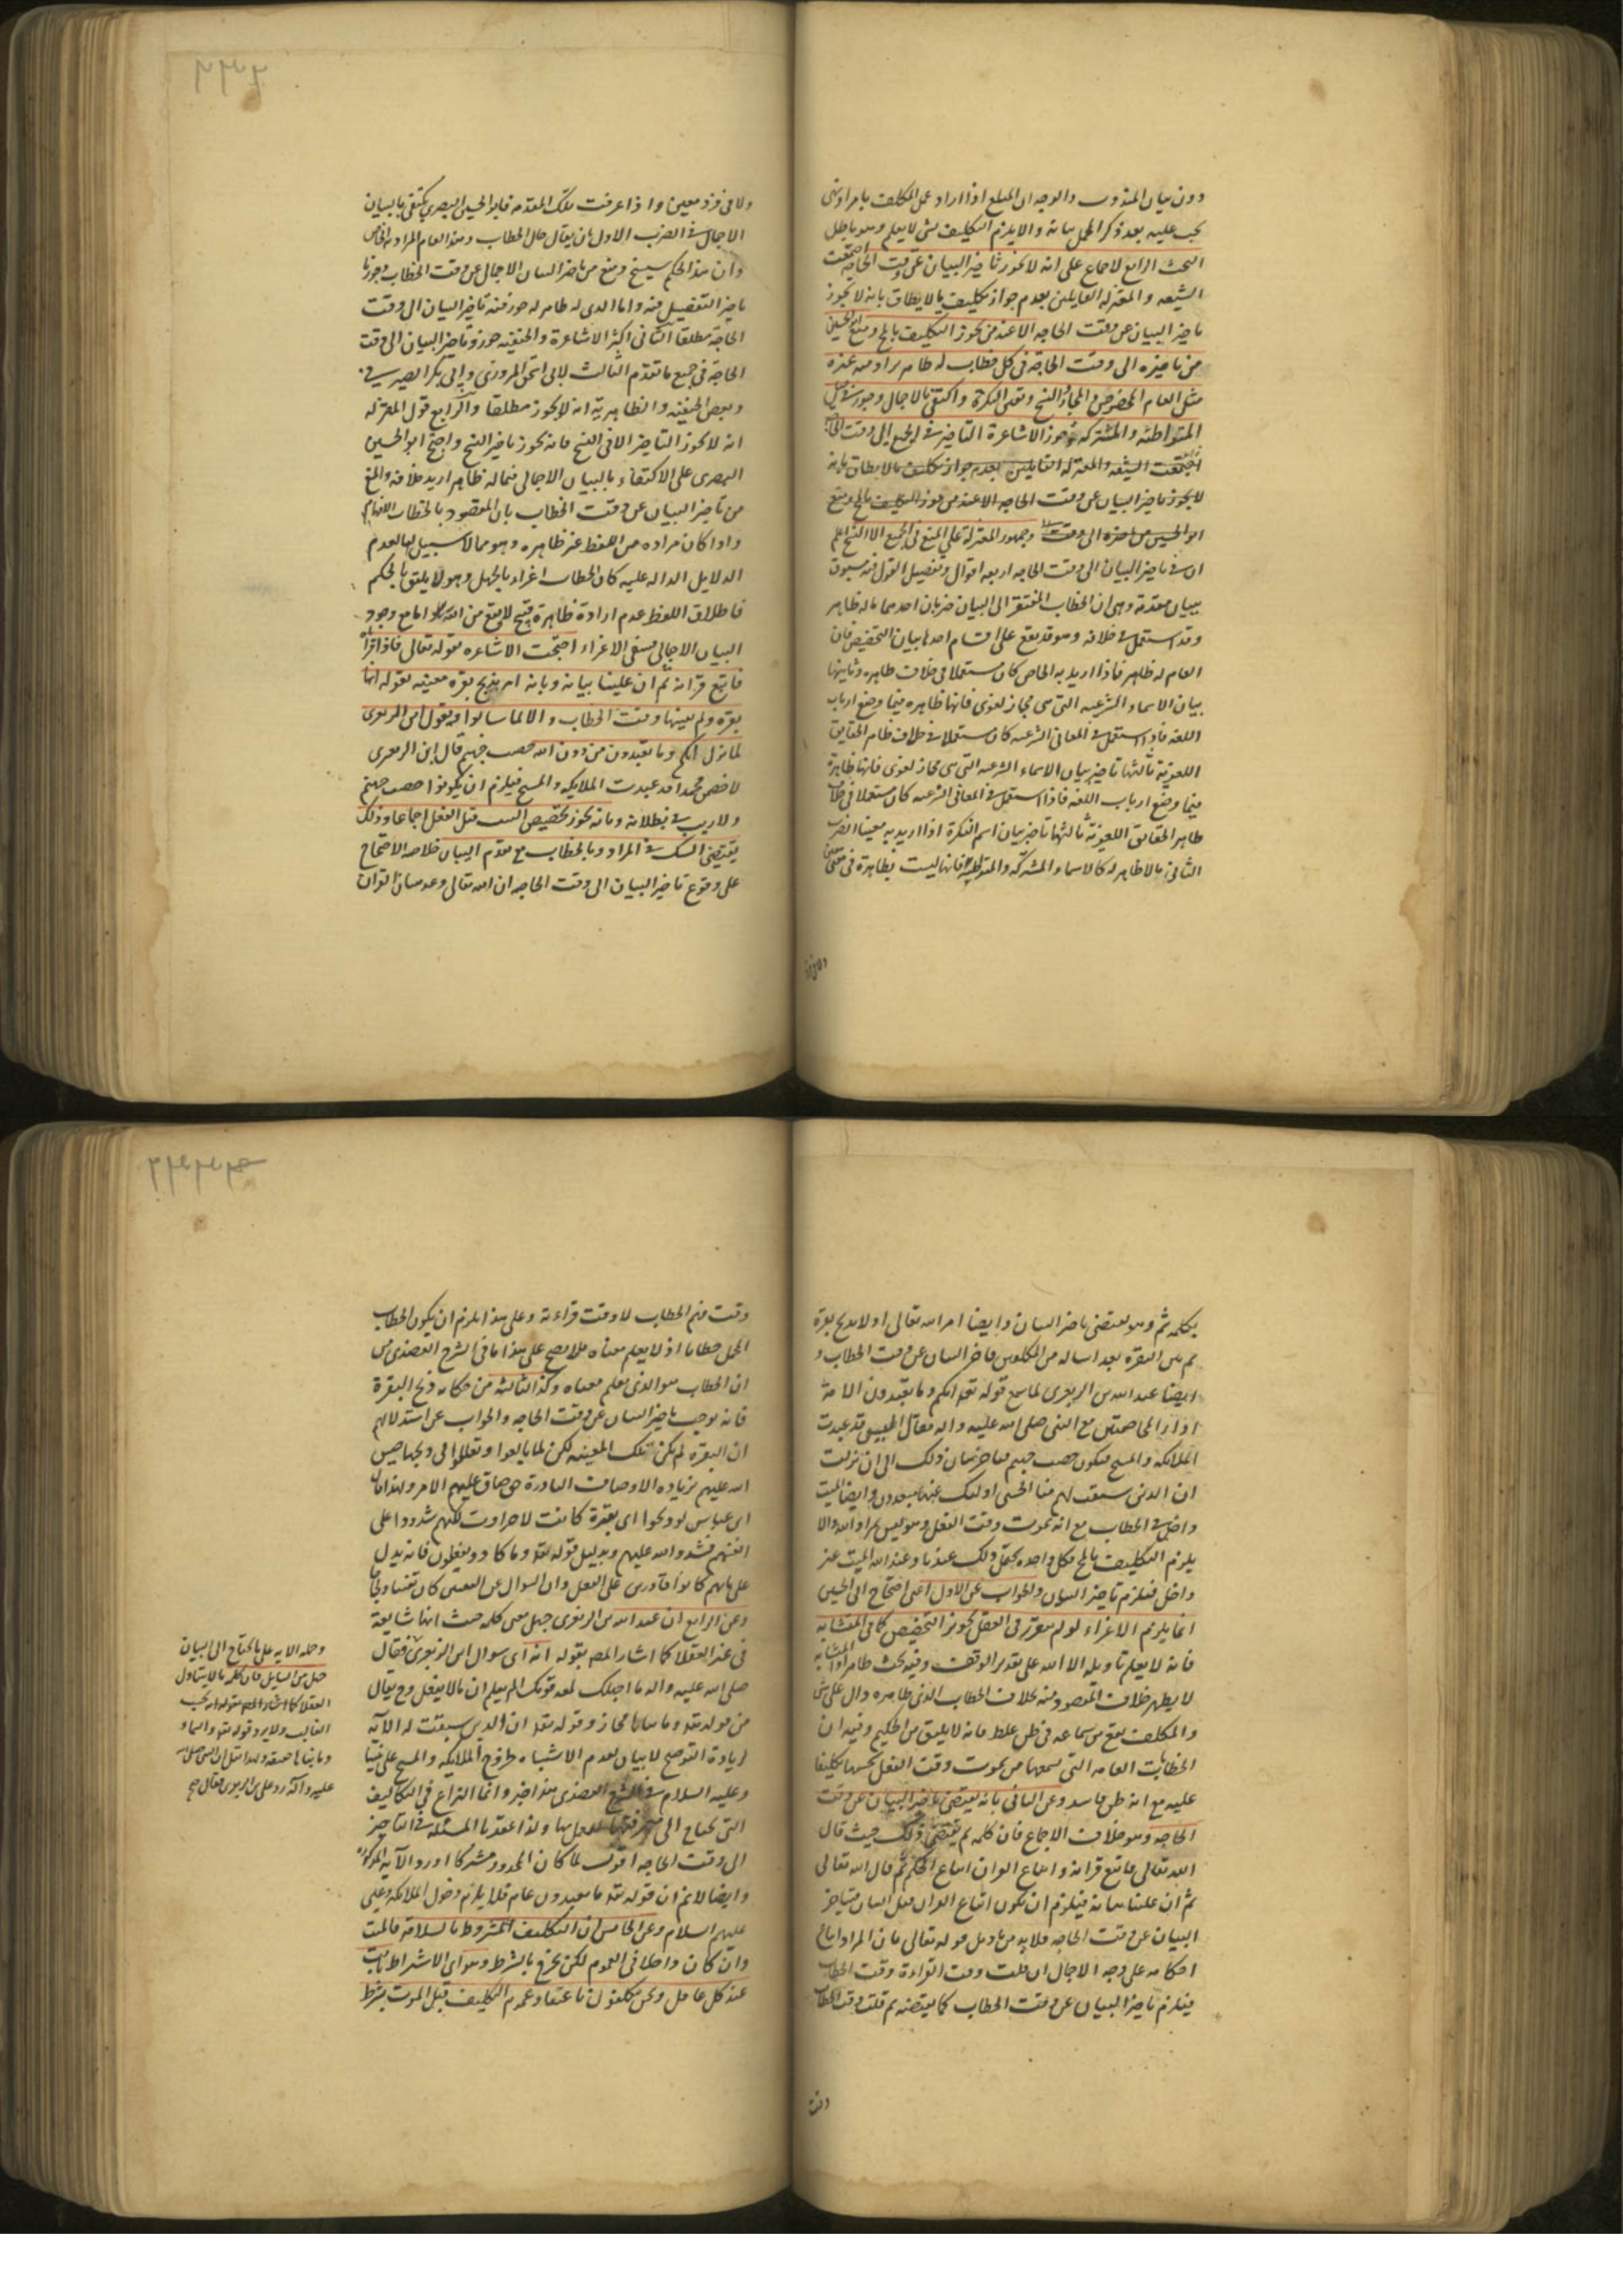 دون بيان المندوب والوجه ان المبلغ اذا اراد عمل المكلف بامر او نهى
يجب عليه بعد ذكر المجمل بيانه والا يلزم التكليف بشى لا يعلم وهو باطل
البحث الرابع الاجماع على انه لا يجوز تاخير البيان عن وقت الحاجة اجتمعت
الشيعه والمعتزله القايلين بعدم جواز تكليف ما لا يطاق بانه لا يجوز
تاخير البيان عن وقت الحاجه الا عند من يجوز التكليف بالمح ومنع ابو الحسين
من تاخيره الى وقت الحاجة فى كل خطاب له ظاهر يراد منه غيره
مثل العام المخصوص والمجاز والنسخ وتعيين النكرة واكتفى بالاجمال وجوز فى مثل
المتواطئه والمشتركه وجوز الاشاعرة التاخير فى الجميع الى وقت الحاجة
اجتمعت الشيعه والمعتزله القايلين بعدم جواز تكليف ما لا يطاق بانه
لا يجوز تاخير البيان عن وقت الحاجه الا عند من جوز التكليف بالمح ومنع
ابو الحسين من تاخيره الى وقت وجمهور المعتزلة على المنع فى الجميع الا النسخ اعلم
ان فى تاخير البيان الى وقت الحاجه اربعه اقوال وتفصيل القول فيه مسبوق
ببيان مقدمة وهى ان الخطاب المفتقر الى البيان ضربان احدهما ما له ظاهر
وقد استعمل فى خلافه وهو قد يقع على اقسام احدها بيان التخصيص فان
العام له ظاهر فاذا اريد به الخاص كان مستعملا فى خلاف ظاهره وثانيها
بيان الاسماء الشرعيه التى هى مجاز لغوى فانها ظاهره فيما وضع ارباب
اللغه فاذا استعمل فى المعانى الشرعيه كان مستعملا فى خلاف ظاهر الحقايق
اللغوية ثالثها تاخير بيان الاسماء الشرعيه التى هى مجاز لغوى فانها ظاهرة
فيما وضع ارباب اللغه فاذا استعمل فى المعانى الشرعيه كان مستعملا فى خلاف
ظاهر الحقايق اللغوية ثالثها تاخير بيان اسم النكرة اذا اريد به معينا الضرب
الثانى ما لا ظاهر له كالاسماء المشتركه والمتواطيه فانها ليست بظاهرة فى معنى
ولا فى فرد معين واذا عرفت تلك المقدمه فابو الحسين البصرى يكتفى بالبيان
الاجمالى فى الضرب الاول بان يقال حال الخطاب وهذا العام المراد به الخاص
وان هذا الحكم سينسخ ومنع من تاخير البيان الاجمالى عن وقت الخطاب وجوز
تاخير التفصيل منه واما الذى له ظاهر له جوز فيه تاخير البيان الى وقت
الحاجة مطلقا الثانى اكثر الاشاعرة والحنفيه جوزو تاخير البيان الى وقت
الحاجة فى جميع ما تقدم الثالث لابى اسحق المروزى وابى بكر الصيرفى
وبعض الحنفيه والظاهرية انه لا يجوز مطلقا والرابع قول المعتزله
انه لا يجوز التاخير الا فى النسخ فانه يجوز تاخير النسخ واحتج ابو الحسين
البصرى على الاكتفاء بالبيان الاجمالى فيما له ظاهر اريد خلافه والمنع
من تاخير البيان عن وقت الخطاب بان المقصود بالخطاب الافهام
واذا كان مراده من اللفظ غير ظاهره وهو مما لا سبيل اليها لعدم
الدلايل الداله عليه كان الخطاب اغراء بالجهل وهو لا يليق بالحكيم
فاطلاق اللفظ عدم ارادة ظاهرة قبيح لا يقع من الله اما مع وجود
البيان الاجمالى فينتفى الاغراء احتجت الاشاعره بقوله تعالى فاذا قرأناه
فاتبع قرانه ثم ان علينا بيانه وبانه امر بذبح بقره معينه لقوله انها
بقرة ولم يعينها وقت الخطاب والا لما سالوا وبقول ابن الزبعرى
لما نزل انكم وما تعبدون من دون الله حصب جهنم قال ابن الزبعرى
لاخصمن محمدا قد عبدت الملايكه والمسيح فيلزم ان يكونوا حصب جهنم
ولا ريب فى بطلانه وبانه يجوز تخصيص الميت قبل الفعل اجماعا وذلك
يقتضى الشك فى المراد وبالخطاب مع تقدم البيان خلاصه الاحتجاج
على وقوع تاخير البيان الى وقت الحاجه ان الله تعالى وعد بيان القران
بكلمه ثم وهو يقتضى تاخير البيان وايضا امر الله تعالى اولا بذبح بقرة
ثم بين البقره بعد اسالة من المكلفين فاخر البيان عن وقت الخطاب و
ايضا عبد الله بن الزبعرى لما سمع قوله تعه انكم وما تعبدون الاية
اراد المخاصمتين مع النبى صلى الله عليه واله فقال اليس قد عبدت
الملائكه والمسيح فيكون حصب جهنم فتاخر بيان ذلك الى ان نزلت
ان الذين سبقت لهم منا الحسنى اولئك عنها مبعدون وايضا الميت
داخل فى الخطاب مع انه يموت وقت الفعل وهو ليس بمراد الله والا
يلزم التكليف بالمح فكل واحد يحتمل ذلك عندنا وعند الله الميت غير
داخل فيلزم تاخير البيان والجواب عن الاول اعنى احتجاج ابى الحسين
انما يلزم الاغراء لو لم يتقرر فى العقل تجويز التخصيص كما فى المتشابه
فانه لا يعلم تاويله الا الله على تقدير الوقف وفيه بحث ظاهر اذ المتشابه
لا يظهر خلاف المقصود منه بخلاف الخطاب الذى ظاهره دال على شى
والمكلف يقع من سماعه فى ظن غلط فانه لا يليق من الحكيم وفيه ان
الخطابات العامه التى يسمعها من يموت وقت الفعل يحسبها تكليفا
عليه مع انه ظن فاسد وعن الثانى بانه يقتضى تاخير البيان عن وقت
الحاجه وهو خلاف الاجماع فان كلمه ثم يقتضى ذلك حيث قال
الله تعالى فاتبع قرانه واتباع القران اتباع الحكم ثم قال الله تعالى
ثم ان علينا بيانه فيلزم ان يكون اتباع القران قبل البيان فيتاخر
البيان عن وقت الحاجه فلا بد من تاويل قوله تعالى بان المراد اتباع
احكامه على وجه الاجمال ان قلت وقت القراءة وقت الخطاب
فيلزم تاخير البيان عن وقت الخطاب كما يقتضه ثم قلت وقت الخطاب
وقت
وقت فهم الخطاب لا وقت قراءته وعلى هذا يلزم ان يكون الخطاب
المجمل خطابا اذ لا يعلم معناه فلا يصح على هذا ما فى الشرح العضدى من
ان الخطاب هو الذى يعلم معناه وكذا الثالثه من حكايه ذبح البقرة
فانه يوجب تاخير البيان عن وقت الحاجه والجواب عن استدلالهم
ان البقره لم يكن تلك المعينه لكن لما بالغوا وتعللوا
الله عليهم بزياده الاوصاف النادرة حتى ضاق عليهم الامر ولهذا قال
ابن عباس لو ذبحوا اى بقرة كانت لاجزاوت لكنهم شددوا على
انفسهم فشدد الله عليهم وبدليل قوله تعه وما كادوا يفعلون فانه يدل
على انهم كانوا قادرين على الفعل وان السوال عن التعيين كان تعنتا
وعن الرابع ان عبد الله بن الزبعرى جهل معنى كلمه حيث انها شايعة
فى غير العقلا كما اشار المصه بقوله انه اى سوال ابن الزبعرى فقال
صلى الله عليه واله ما اجهلك بلغة قومك الم يعلم ان ما لا يعقل وح يقال
من قوله تعه وما بناها مجاز وقوله تعه ان الذين سبقت له الآيه
لزيادة التوضيح لا بيان لعدم الاشتباه خروج الملايكه والمسيح على نبينا
وعليه السلام فى الشرح العضدى هذا خبر وانما النزاع فى التكاليف
التى يحتاج الى معرفتها للعمل بها ولذا عقدنا المسئله فى التاخير
الى وقت الحاجه اقول لما كان المحذور مشتركا اورد الآيه المذكوره
وايضا لا نم ان قوله تعه ما تعبدون عام فلا يلزم دخول الملائكه وعيسى
عليهم السلام وعن الخامس ان التكليف المشروط بالسلامة فالميت
وان كان داخلا فى العموم لكن يخرج بالشرط وهو اى الاشتراط ثابت
عند كل عاقل ونحن مكلفون باعتقاد عموم التكليف قبل الموت بشرط
وحمله الايه على ما يحتاج الى البيان
جهل من السايل فان كلمه ما لا يتناول
العقلا كما اشار المصه بقوله انه بحسب
الغالب ولا يرد قوله تعه والسماء و
عليه وآله رد على ابن الزبعرى فقال